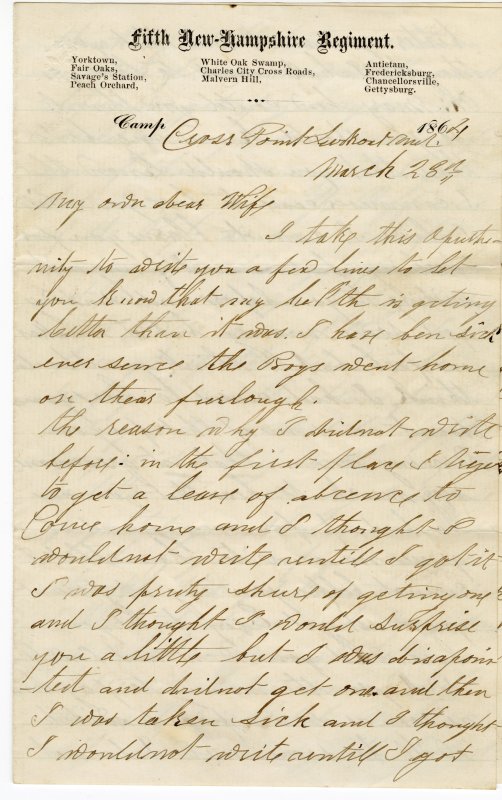 Fifth New-Hampshire Regiment.
Yorktown,
Fair Oaks,
Savage's Station,
Peach Orchard,
White Oak Swamp,
Charles City Cross Roads,
Malvern Hill,
Antietam,
Fredericksburg,
Chancellorsville,
Gettysburg.
Camp Cross Point Lookout Md. 1864
March 28th
My own dear Wife
I take this opurtu-
nity to write you a few lines to let
you know that my helth is geting
better than it was. I have ben sick
ever sence the Boys went home
on thear furlough.
the reason why I didnot write
before. in the first place I tryed
to get a leave of abcence to
Come home and I thought I
wouldnot write untill I got it
I was pruty shure of geting one
and I thought I would surprise
you a little but I was disapoin
-ted and didnot get one. and then
I was taken sick and I thought
I wouldnot write untill I got